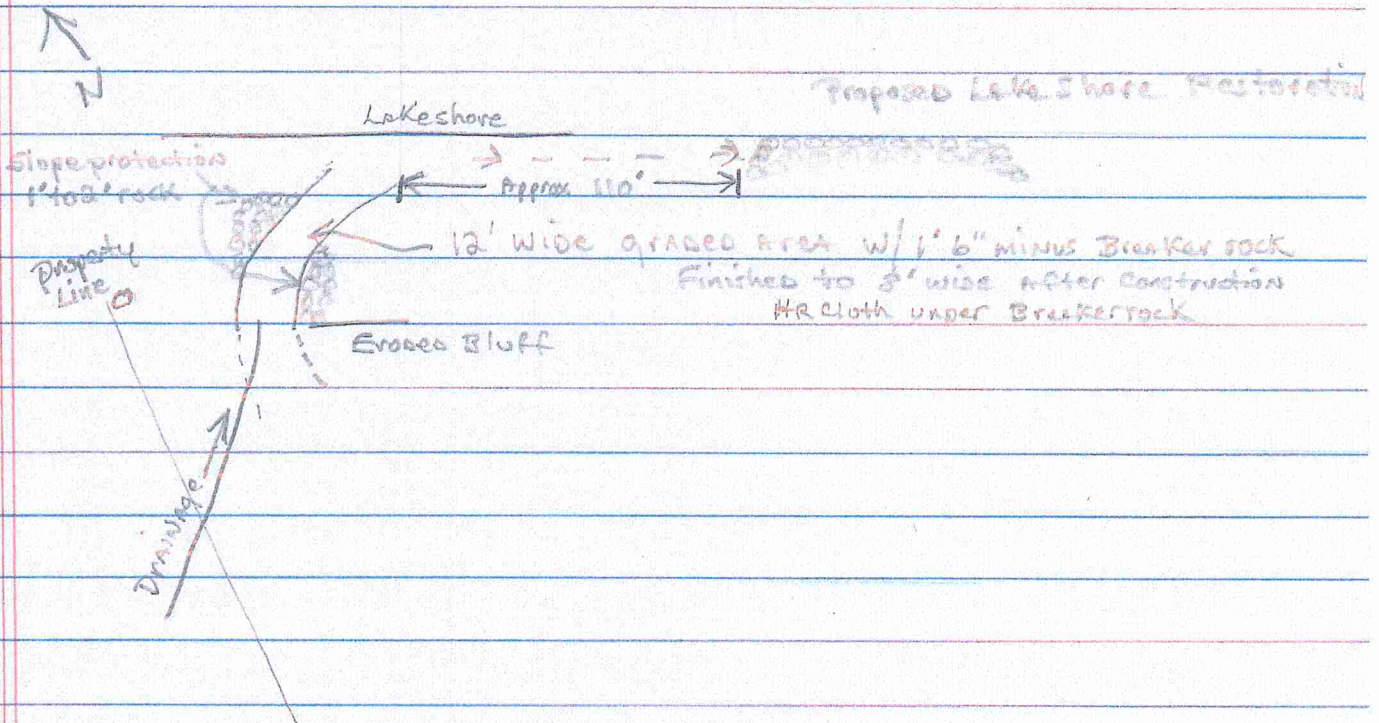 N
Proposed Lake Shore Restoration
Lakeshore
Slope protection
1' to 2' rock
Approx 110'
12' wide graded area w/ 1' 6" minus Breaker rock
Finished to 8' wide After Construction
HR Cloth under Breaker rock
Property
Line
Eroded Bluff
Drainage